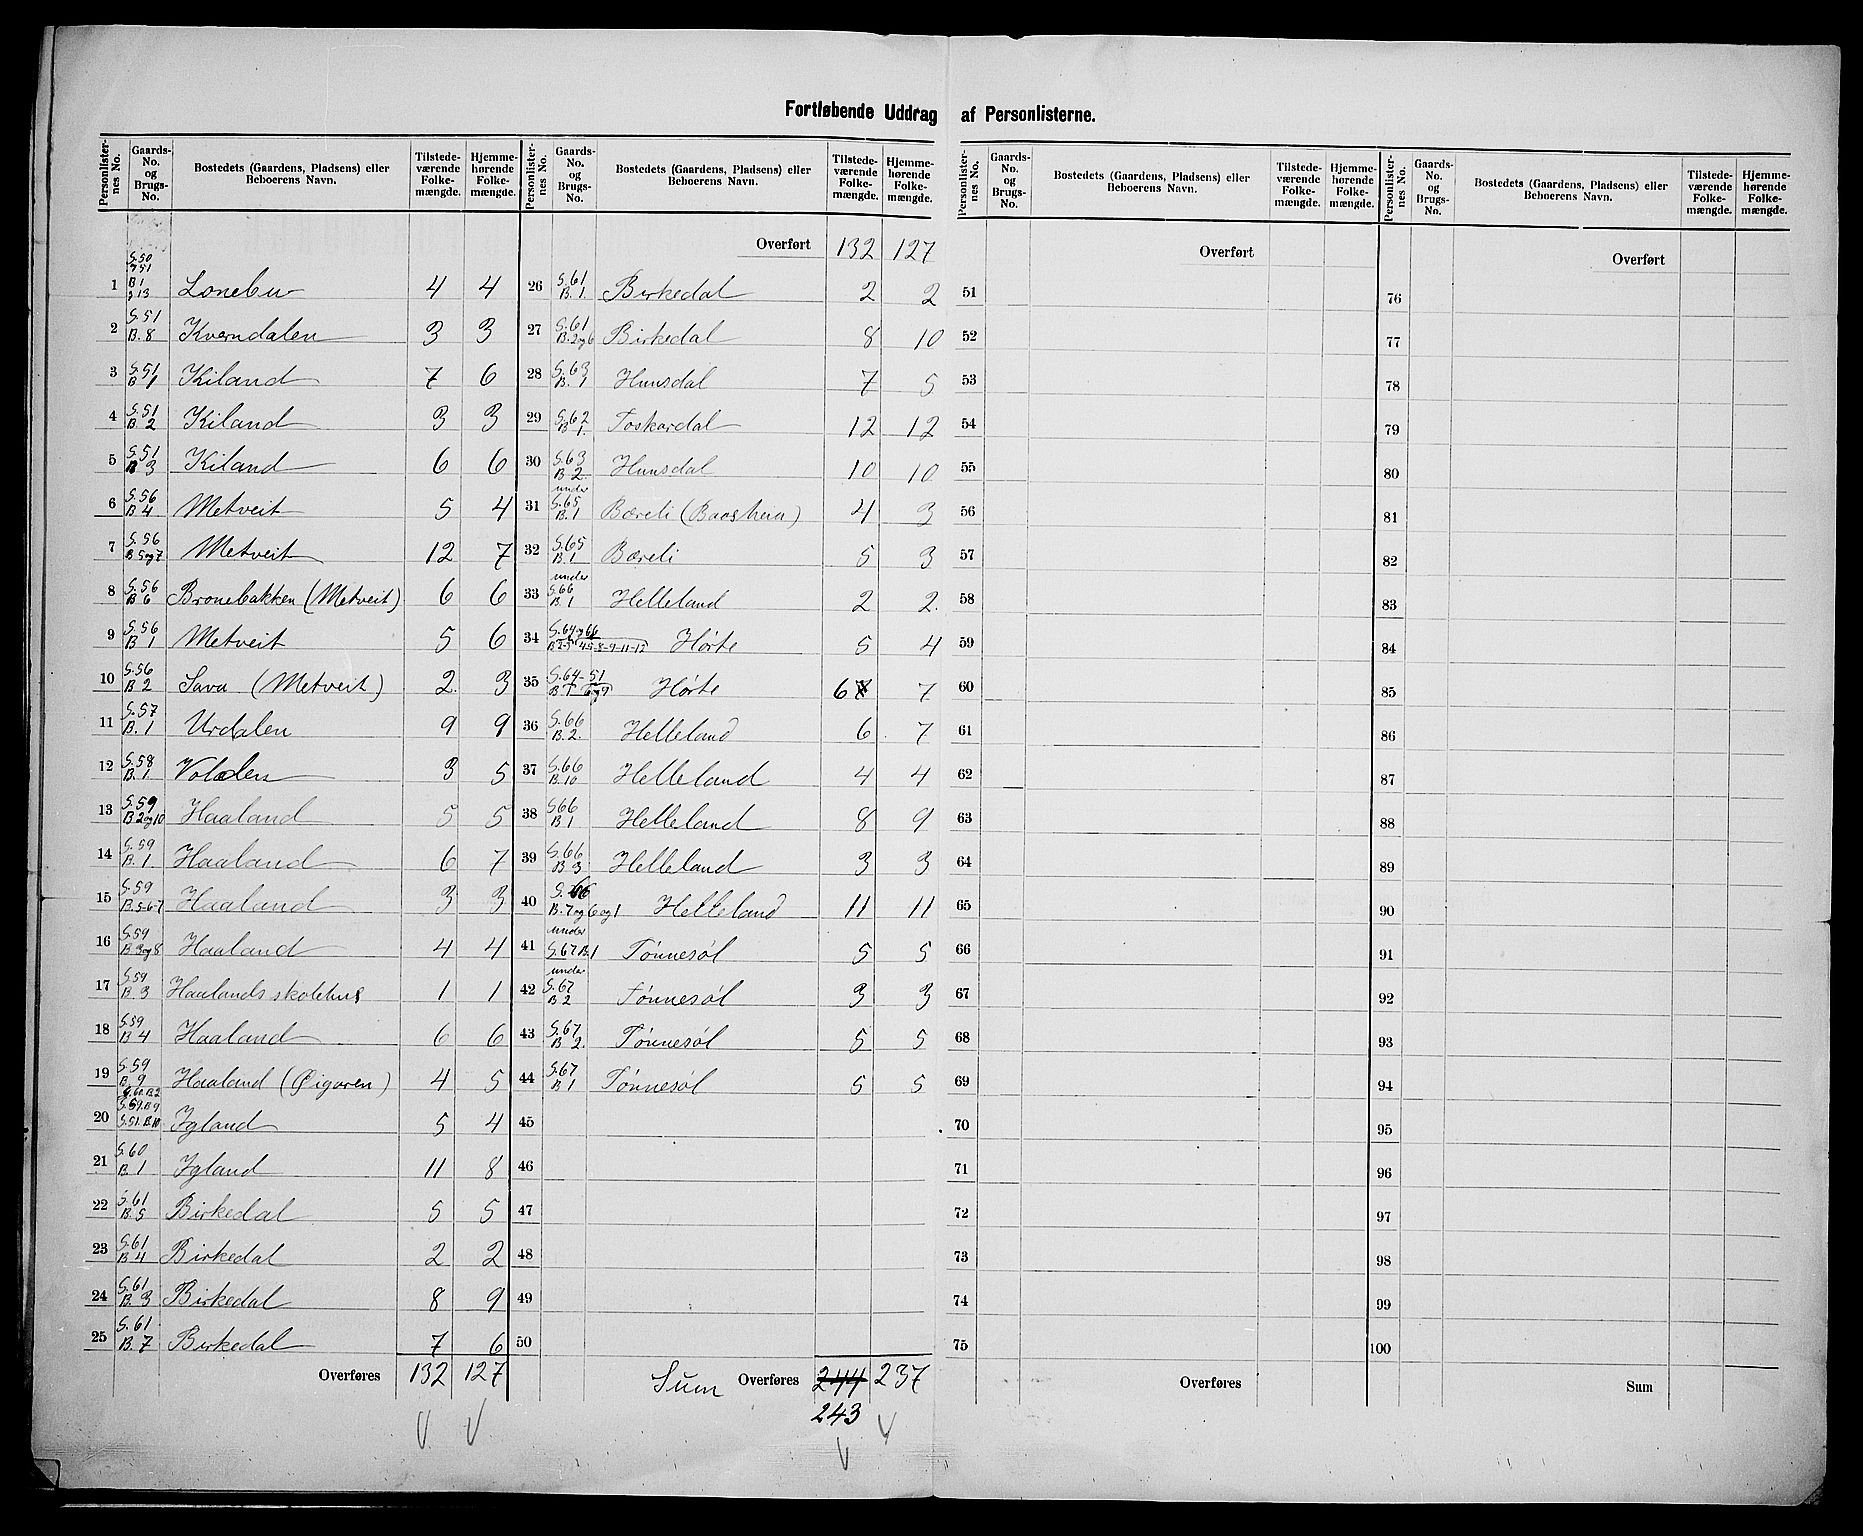 Fortløbende Uddrag af Personlisterne.
Personlister-nes No. | Gaards-No. og Brugs-No. | Bostedets (Gaardens, Pladsens) eller Beboerens Navn. | Tilstede-værende Folke-mængde. | Hjemme-hørende Folke-mængde.
1 G.50 B.1 Lonebu 4 4
2 G.51 B.8 Kverndalen 3 3
3 G.51 B 1 Kiland 7 6
4 G.51 B.2 Kiland 3 3
5 G.51 B 3 Kiland 6 6
6 G.56 B4 Metveit 5 4
7 G.56 B.5og7 Metveit 12 7
8 G.56 B 6 Bronebakken (Metveit) 6 6
9 G.56 B 1 Metveit 5 6
10 G.56 B 2 Sava (Metveit) 2 3
11 G.57 B.1 Urdalen 9 9
12 G.58 B.1 Volden 3 5
13 G.59 B 2og10 Haaland 5 5
14 G.59 B.1 Haaland 6 7
15 G.59 B.5-6-7 Haaland 3 3
16 G.59 B.3og8 Haaland 4 4
17 G.59 B.3 Haalands skolehus 1 1
18 G.59 B 4 Haaland 6 6
19 G.59 B.9 Haaland (Øigaren) 4 5
20 G.60.B2 G.59.B9 G.51.B.10 Igland 5 4
21 G.60 B.1 Igland 11 8
22 G.61 B.5 Birkedal 5 5
23 G.61 B 4 Birkedal 2 2
24 G.61 B.3 Birkedal 8 9
25 G.61 B.7 Birkedal 7 6
Overføres 132 127
Personlister-nes No. | Gaards-No. og Brugs-No. | Bostedets (Gaardens, Pladsens) eller Beboerens Navn. | Tilstede-værende Folke-mængde. | Hjemme-hørende Folke-mængde.
Overført 132 127
26 G.61 B.1. Birkedal 2 2
27 G.61 B.2og6 Birkedal 8 10
28 G.63 B.1 Hunsdal 7 5
29 G.62 B 1. Toskardal 12 12
30 G.63 B 2. Hunsdal 10 10
31 under G.65 B.1 Bæreli (Baasheia) 4 3
32 G.65 B.1 Bæreli 5 3
33 under G.66 B.1 Helleland 2 2.
34 G.64og66 Hørte 5 4
35 G.64-51 Hørte 6 7
36 G.66 B.2. Helleland 6 7
37 G.66 B.10 Helleland 4 4
38 G66 B 1 Helleland 8 9
39 G.66 B 3 Helleland 3 3
40 G.66 B.7og6og1 Helleland 11 11
41 under G.67 B.1 Tønnesøl 5 5
42 under G.67 B2 Tønnesøl 3 3
43 G.67 B 2. Tønnesøl 5 5
44 G.67 B 1 Tønnesøl 5 5
45
46
47
48
49
50
Sum Overføres 244 237
243
Personlister-nes No. | Gaards-No. og Brugs-No. | Bostedets (Gaardens, Pladsens) eller Beboerens Navn. | Tilstede-værende Folke-mængde. | Hjemme-hørende Folke-mængde.
Overført
51
52
53
54
55
56
57
58
59
60
61
62
63
64
65
66
67
68
69
70
71
72
73
74
75
Overføres
Personlister-nes No. | Gaards-No. og Brugs-No. | Bostedets (Gaardens, Pladsens) eller Beboerens Navn. | Tilstede-værende Folke-mængde. | Hjemme-hørende Folke-mængde.
Overført
76
77
78
79
80
81
82
83
84
85
86
87
88
89
90
91
92
93
94
95
96
97
98
99
100
Sum